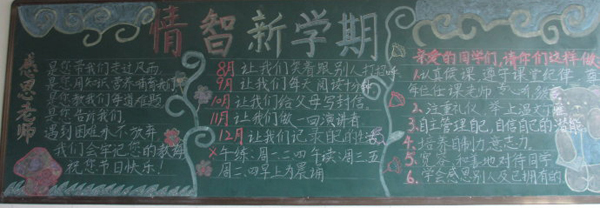 情智新学期
感恩老师
是您带我们走过风雨
是您用知识营养哺育我们
是您教我们
是您告诉我们
遇到困难永不放弃
我们会牢记您的教诲
祝您节日快乐!
8月 让我们笑着跟别人打招呼
9月 让我们每天阅读十分钟
10月 让我们给父母写封信
11月 让我们做一回演讲者
12月 让我们记录自己的
午练:周一二四 午读:周三五
周二.四早上为晨诵
亲爱的同学们,请你们这样做
1.认真做课 遵守课堂纪律
任课老师
2.注重礼仪 举止温文
3.自主管理自己,自信自己的潜能
4.培养自制力意志力
5.宽容 和善地对待同学
6.学会感恩别人及已拥有的